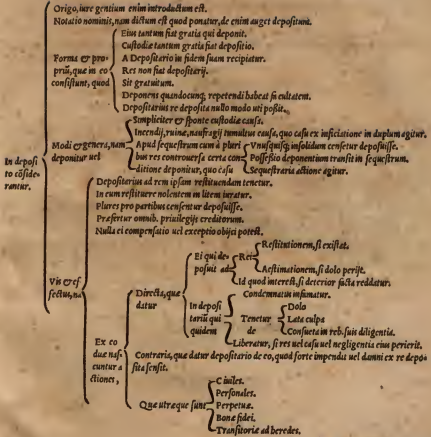 Origo, iure gentium enim introductum est.
Notatio nominis, nam dictum est quod ponatur, de enim auget depositum.
Eius tantum fiat gratia qui deponit.
Custodiæ tantum gratia fiat depositio.
Forma & pro-
priū, quæ in eo
consistunt, quod
A Depositario in fidem suam recipiatur.
Res non fiat depositarij.
Sit gratuitum.
Deponens quandocunq; repetendi habeat facultatem.
Depositarius re deposita nullo modo uti possit.
Modi & genera, nam
deponitur uel
Simpliciter & sponte custodiæ causa.
Incendij, ruinæ, naufragij tumultus causa, quo casu ex inficiatione in duplum agitur.
Apud sequestrum cum à pluri
bus res controuersa certa con
ditione deponitur, quo casu
Vnusquisq; insolidum censetur deposuisse.
Possessio deponentium transit in sequestrum.
Sequestraria actione agitur.
In deposi
to cōside-
rantur.
Depositarius ad rem ipsam restituendam tenetur.
In eum restituere nolentem in litem iuratur.
Plures pro partibus censentur deposuisse.
Præfertur omnib. priuilegijs creditorum.
Nulla ei compensatio uel exceptio obijci potest.
Vis & ef
fectus, nā
Ex eo
duæ nas-
cuntur a
ctiones,
Directa, quæ
datur
Ei qui de-
posuit ad
Rei
Restitutionem, si existat.
Aestimationem, si dolo perijt.
Id quod interest, si deterior facta reddatur.
In deposi
tariū qui
quidem
Condemnatus infamatur.
Tenetur
de
Dolo
Lata culpa
Consueta in reb. suis diligentia.
Liberatur, si res uel casu uel negligentia eius perierit.
Contraria, quæ datur depositario de eo, quod forte impendit uel damni ex re depo-
sita sensit.
Quæ utræque sunt
Ciuiles.
Personales.
Perpetuæ.
Bonæ fidei.
Transitoriæ ad heredes.